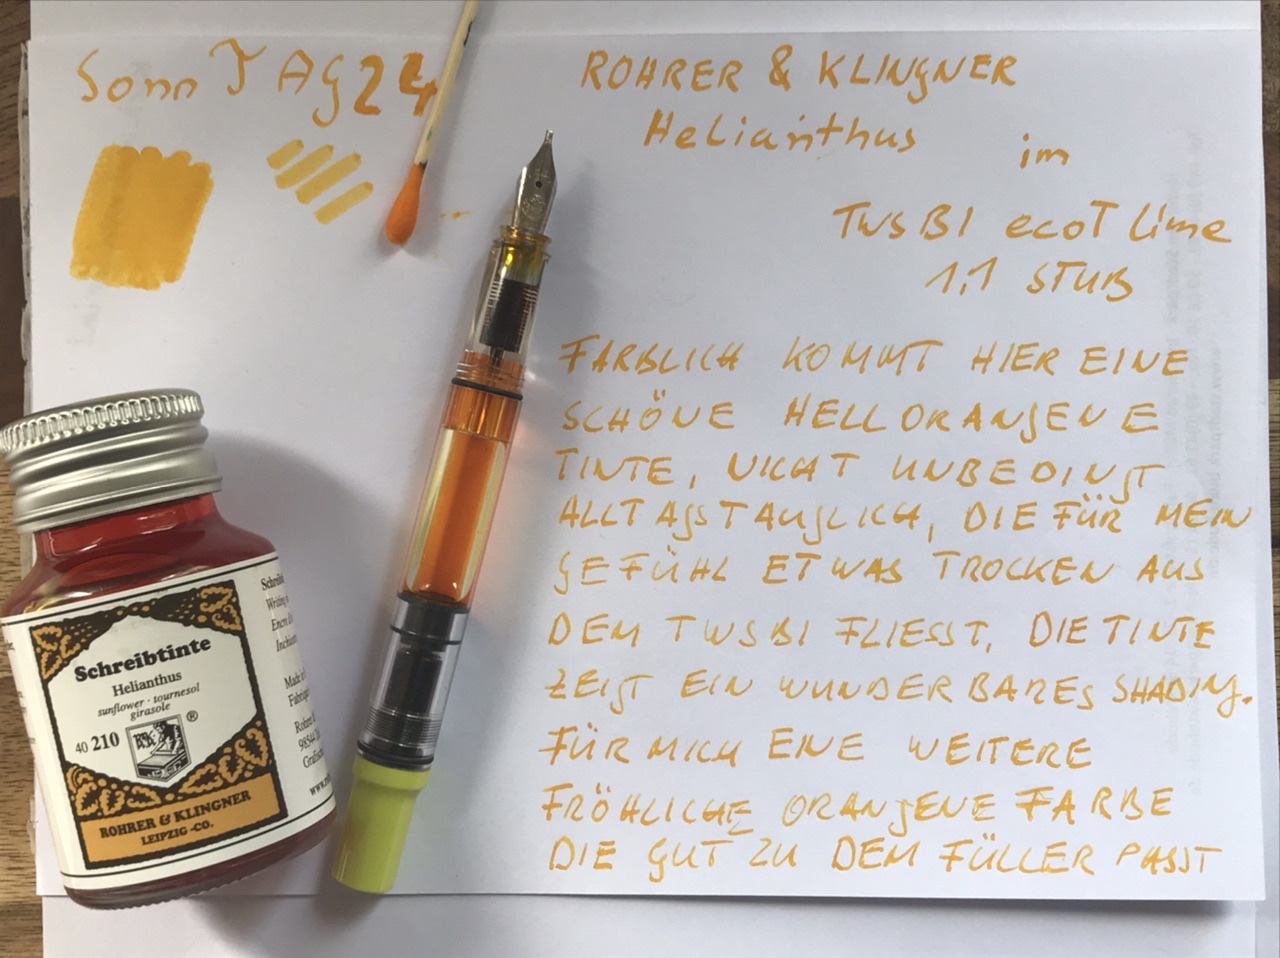 Sonn TAG 24
ROHRER & KLINGNER
Helianthus
im
TWSBI ecoT Lime
1,1 STUB
FARBLICH KOMMT HIER EINE
SCHÖNE HELLORANGENE
TINTE, NICHT UNBEDINGT
ALLTAGSTAUGLICH, DIE FÜR MEIN
GEFÜHL ETWAS TROCKEN AUS
DEM TWSBI FLIESST, DIE TINTE
ZEIGT EIN WUNDERBARES SHADING.
FÜR MICH EINE WEITERE
FRÖHLICHE ORANGENE FARBE
DIE GUT ZU DEM FÜLLER PASST
Schreibtinte
Helianthus
sunflower · tournesol
girasole
®
40 210
ROHRER & KLINGNER
LEIPZIG -CO.